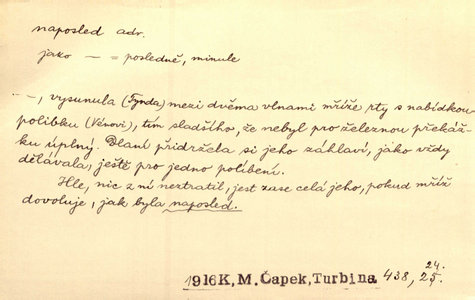 naposled adv.
jako — = posledně, minule
—, vysunula (Tynda) mezi dvěma vlnami mříže rty s nabídkou
polibku (Vénovi), tím sladšího, že nebyl pro železnou překáž-
ku úplný. Dlaní přidržela si jeho záhlaví, jako vždy
dělávala, ještě pro jedno políbení.
Hle, nic z ní neztratil, jest zase celá jeho, pokud mříž
dovoluje, jak byla naposled.
1916K, M. Čapek, Turbina 438, 24. 25.